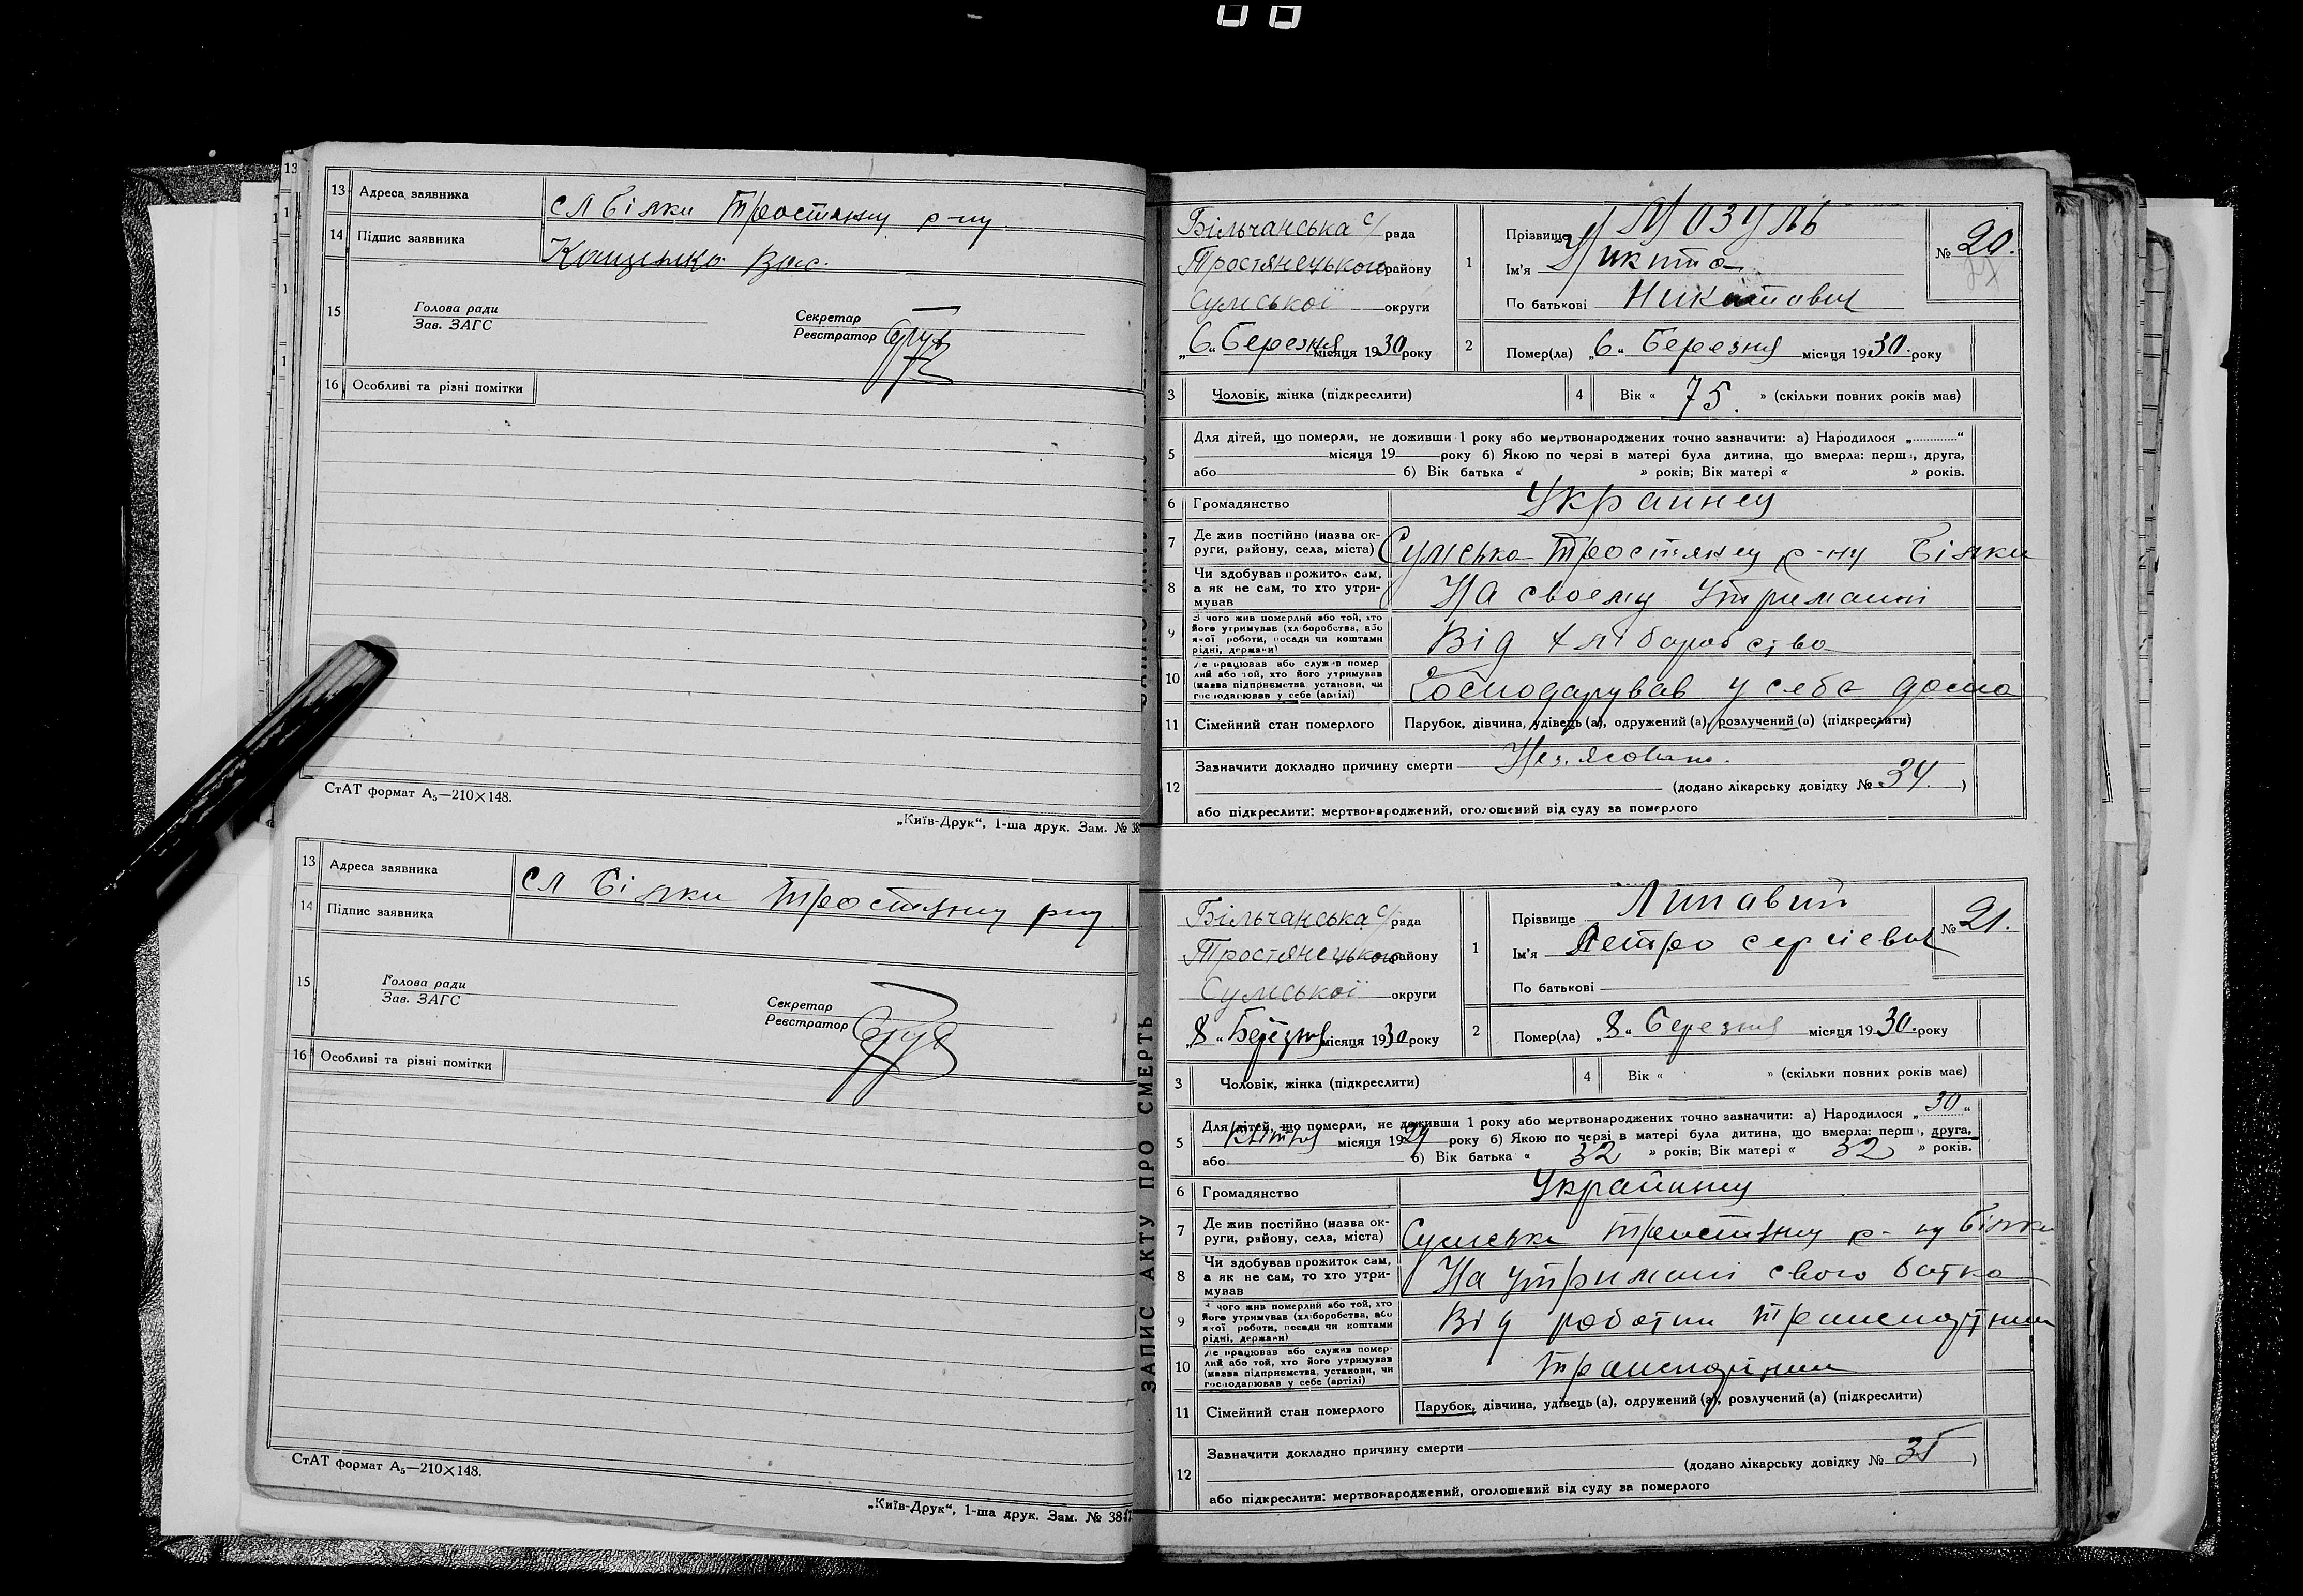 13 Адреса заявника сл Білки Тростянец р-ну
14 Підпис заявника
15 Голова ради
Зав. ЗАГС
Секретар
Реєстратор
16 Особливі та різні помітки
СтАТ формат А₅—210×148.
„Київ-Друк“, 1-ша друк. Зам. № 38
13 Адреса заявника сл Білки Тростянец рну
14 Підпис заявника
15 Голова ради
Зав. ЗАГС
Секретар
Реєстратор
16 Особливі та різні помітки
СтАТ формат А₅—210×148.
„Київ-Друк“, 1-ша друк. Зам. №
ЗАПИС АКТУ ПРО СМЕРТЬ
Більчанська с/рада
Тростянецької району
Сумської округи
„6“ Березня місяця 1930 року
1 Прізвище Мозуль
Ім'я Микита
По батькові
№ 20.
2 Помер(ла) „6“ Березня місяця 1930. року
3 Чоловік, жінка (підкреслити)
4 Вік « 75. » (скільки повних років має)
5 Для дітей, що померли, не доживши 1 року або мертвонароджених точно зазначити: а) Народилося „ “
місяця 19 року б) Якою по черзі в матері була дитина, що вмерла: перша, друга,
або 6) Вік батька « » років; Вік матері « » років.
6 Громадянство Украинец
7 Де жив постійно (назва округи, району, села, міста) Сумська Тростянец р-ну Білки
8 Чи здобував прожиток сам,
а як не сам, то хто утри-
мував На своему утриманні
9 З чого жив померлий або той, хто
його утримував (хліборобства, або
якої роботи, посади чи коштами
рідні, держави) Від хліборобства
10 Де працював або служив помер
лий або той, хто його утримував
(назва підприємства, установи, чи
господарював у себе (артілі) Господарував у себе дома
11 Сімейний стан померлого Парубок, дівчина, удівець (а), одружений (а), розлучений (а) (підкреслити)
12 Зазначити докладно причину смерти
(додано лікарську довідку № 34. )
або підкреслити: мертвонароджений, оголошений від суду за померлого
Більчанська с/рада
Тростянецької району
Сумської округи
„8“ Березня місяця 1930 року
1 Прізвище Липавий
Ім'я Петро сергієвич
По батькові
№ 21.
2 Помер(ла) „8“ Березня місяця 1930. року
3 Чоловік, жінка (підкреслити)
4 Вік « » (скільки повних років має)
5 Для дітей, що померли, не доживши 1 року або мертвонароджених точно зазначити: а) Народилося „30“
Квітня місяця 1929 року б) Якою по черзі в матері була дитина, що вмерла: перша, друга,
або 6) Вік батька « 32 » років; Вік матері « 32 » років.
6 Громадянство Украйинец
7 Де жив постійно (назва округи, району, села, міста) Сумська Тростянец р-ну Білки
8 Чи здобував прожиток сам,
а як не сам, то хто утри-
мував На утримані свого батка
9 З чого жив померлий або той, хто
його утримував (хліборобства, або
якої роботи, посади чи коштами
рідні, держави) Від роботи
10 Де працював або служив помер-
лий або той, хто його утримував
(назва підприємства, установи, чи
господарював у себе (артілі)
11 Сімейний стан померлого Парубок, дівчина, удівець (а), одружений (а), розлучений (а) (підкреслити)
12 Зазначити докладно причину смерти
(додано лікарську довідку № 35 )
або підкреслити: мертвонароджений, оголошений від суду за померлого